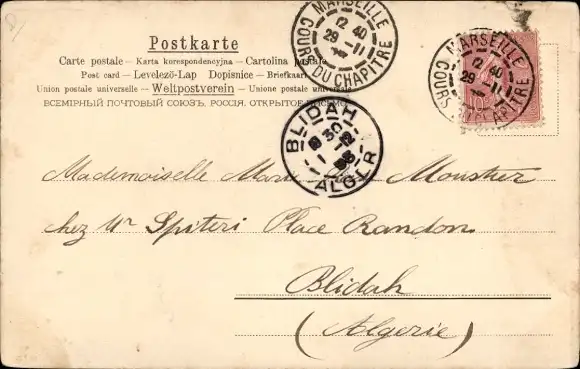 Postkarte
Carte postale – Karta korespondencyjna – Cartolina postale
Post card – Levelező-Lap Dopisnice – Briefkaart
Union postale universelle – Weltpostverein – Unione postale universale
ВСЕМІРНЫЙ ПОЧТОВЫЙ СОЮЗЪ, РОССІЯ. ОТКРЫТОЕ
MARSEILLE
12 40
29 11
COURS DU CHAPITRE
MARSEILLE
12 40
29 11
COURS DU CHAPITRE
BLIDAH
30
ALGER
Mademoiselle Mousther
chez Mr Spiteri Place Randon
Blidah
(Algerie)